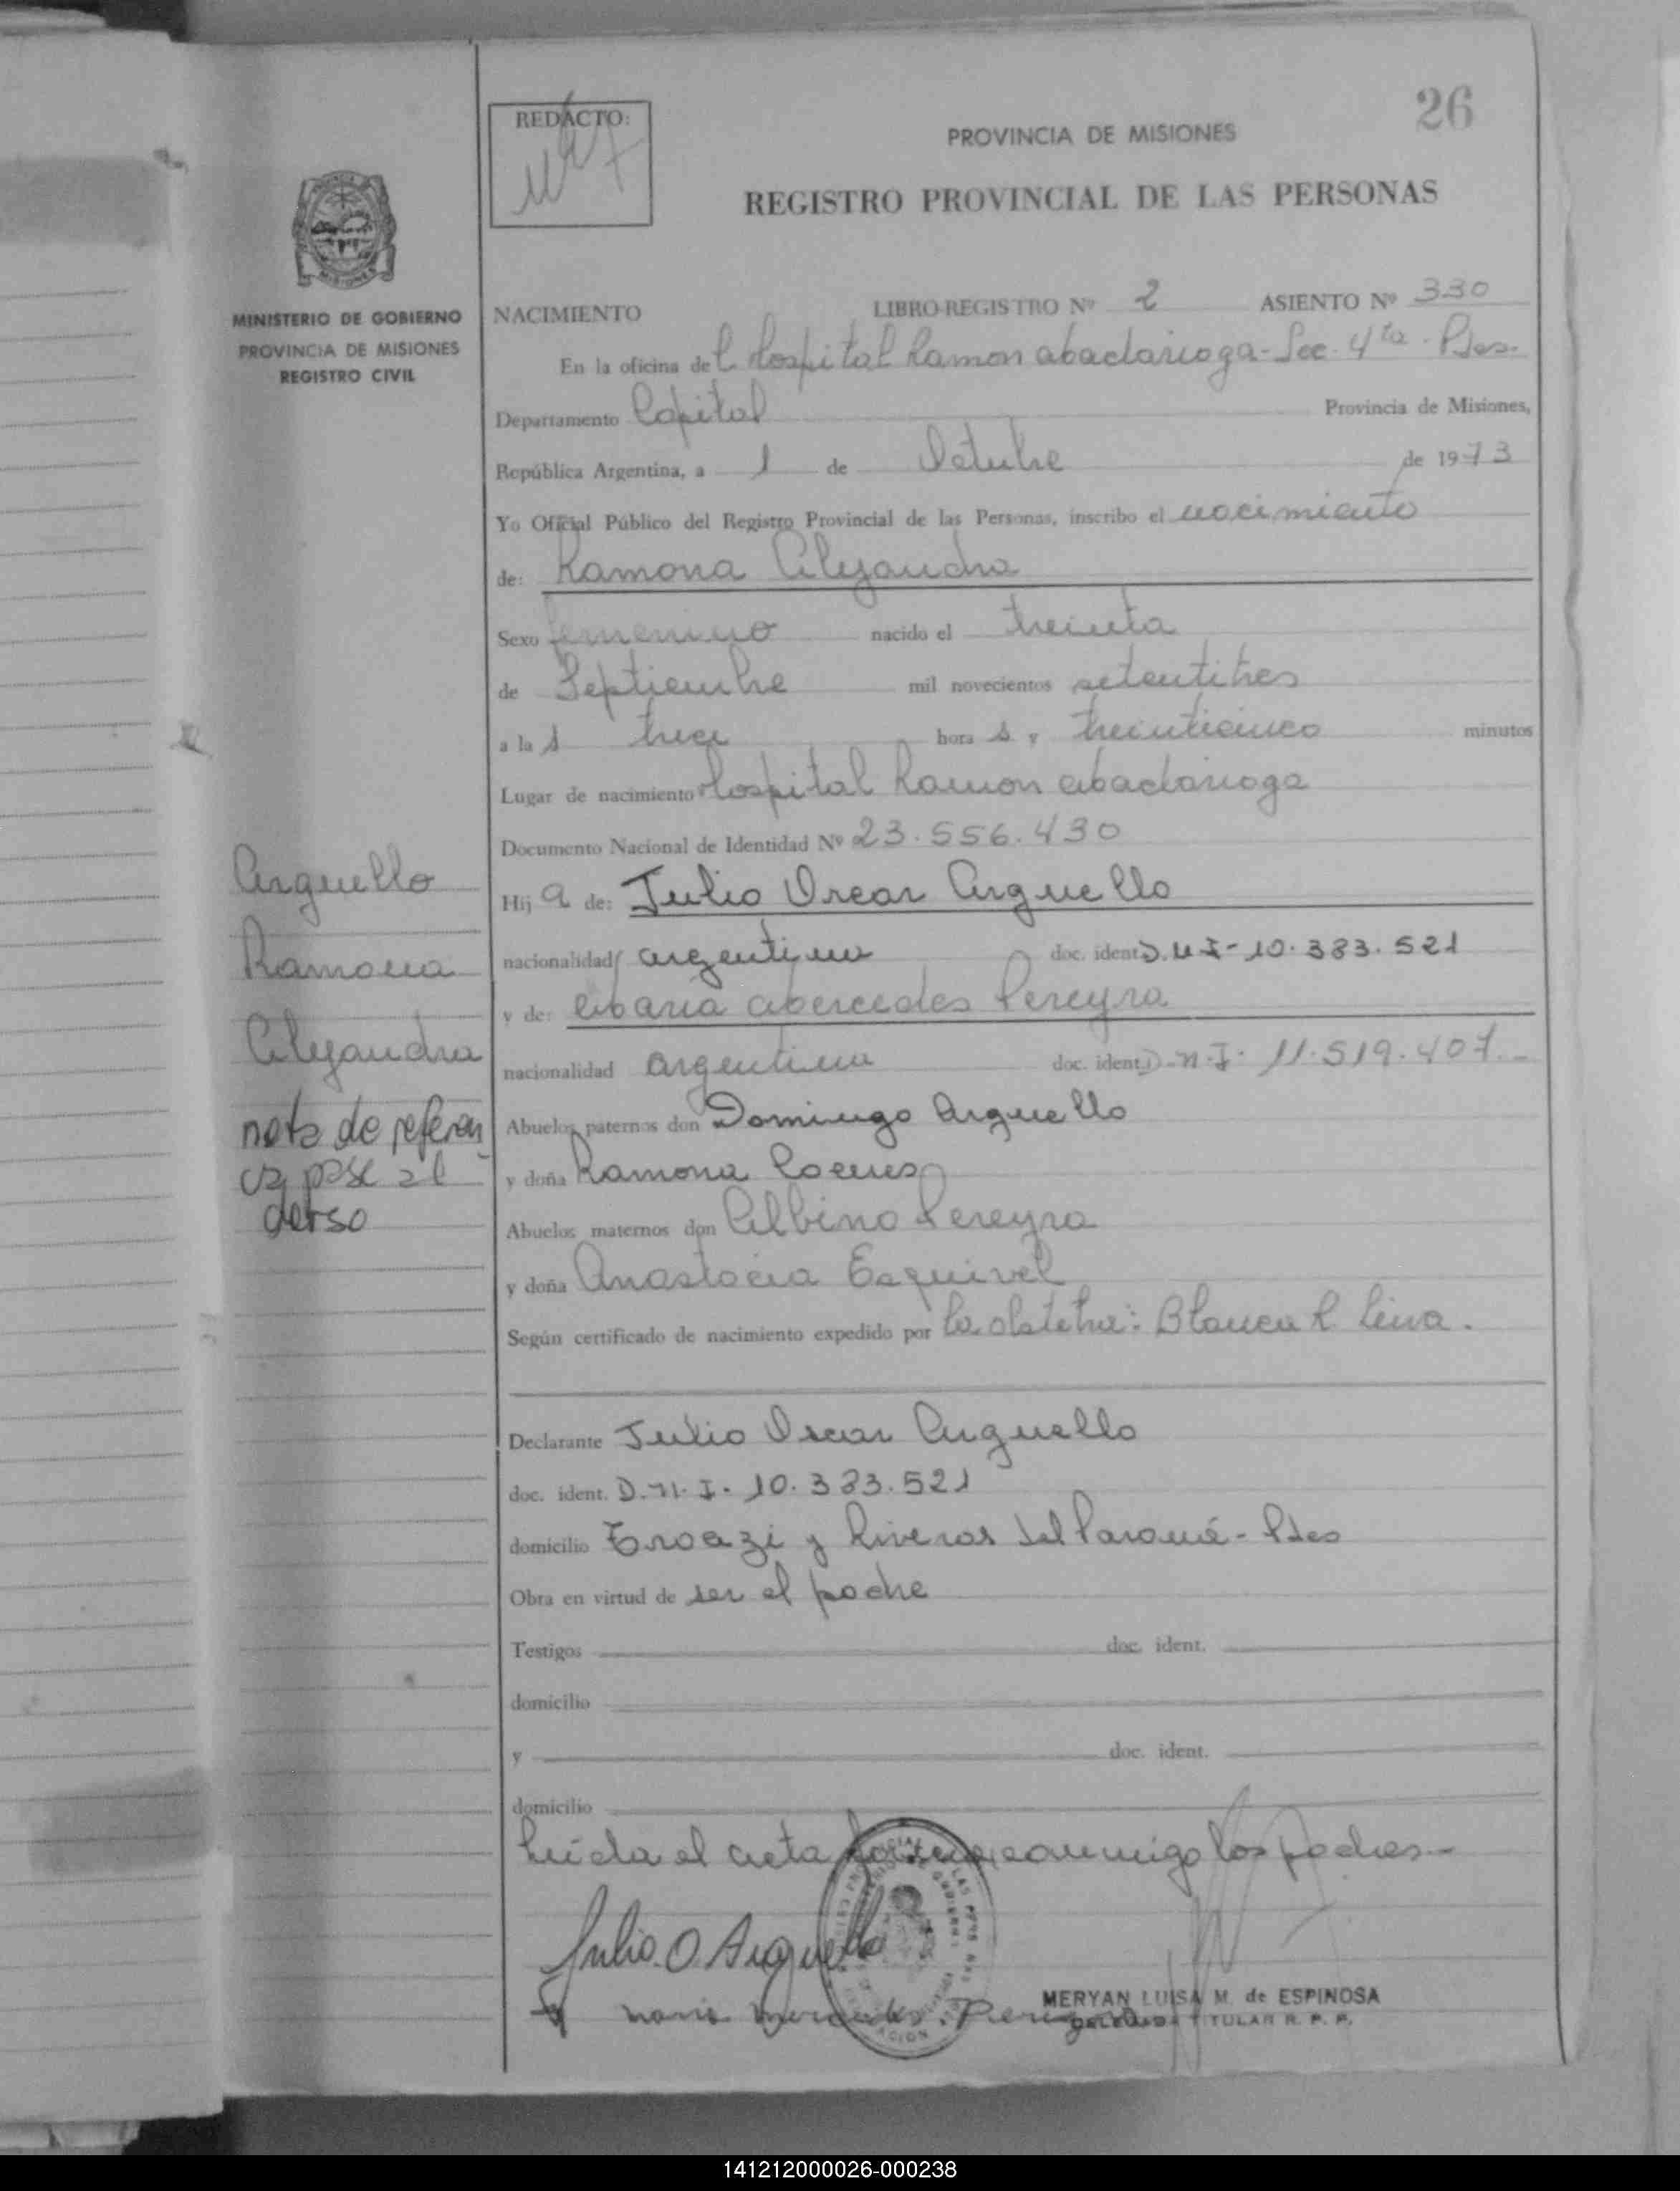 26
REDACTO:
PROVINCIA DE MISIONES
REGISTRO PROVINCIAL DE LAS PERSONAS
MINISTERIO DE GOBIERNO
PROVINCIA DE MISIONES
REGISTRO CIVIL
NACIMIENTO LIBRO-REGISTRO Nº 2 ASIENTO Nº 330
En la oficina del Hospital Ramon Madariaga - Sec. 4ta - Pdas.
Departamento Capital Provincia de Misiones,
República Argentina, a 1 de Octubre de 1973
Yo Oficial Público del Registro Provincial de las Personas, inscribo el nacimiento
de: Ramona Alejandra
Sexo femenino nacido el treinta
de Septiembre mil novecientos setentitres
a las trece horas y treinticinco minutos
Lugar de nacimiento Hospital Ramon Madariaga
Documento Nacional de Identidad Nº 23.556.430
Hija de: Julio Oscar Arguello
nacionalidad argentina doc. ident. D.N.I- 10.383.521
y de: Maria Mercedes Pereyra
nacionalidad argentina doc. ident. D.N.I. 11.519.407.-
Abuelos paternos don Domingo Arguello
y doña Ramona
Abuelos maternos don Albino Pereyra
y doña Anastacia Esquivel
Según certificado de nacimiento expedido por la obstetra: Blanca R. Leiva.
Arguello
Ramona
Alejandra
nota de referen
cia pase al
dorso
Declarante Julio Oscar Arguello
doc. ident. D.N.I. 10.383.521
domicilio y Riveras del Paraná - Pdas
Obra en virtud de ser el padre
Testigos doc. ident.
domicilio
y doc. ident.
domicilio
Leida el acta conmigo los padres-
Julio O Arguello
Maria Mercedes Pereyra
MERYAN LUISA M. de ESPINOSA
DELEGADA TITULAR R. P. P.
141212000026-000238